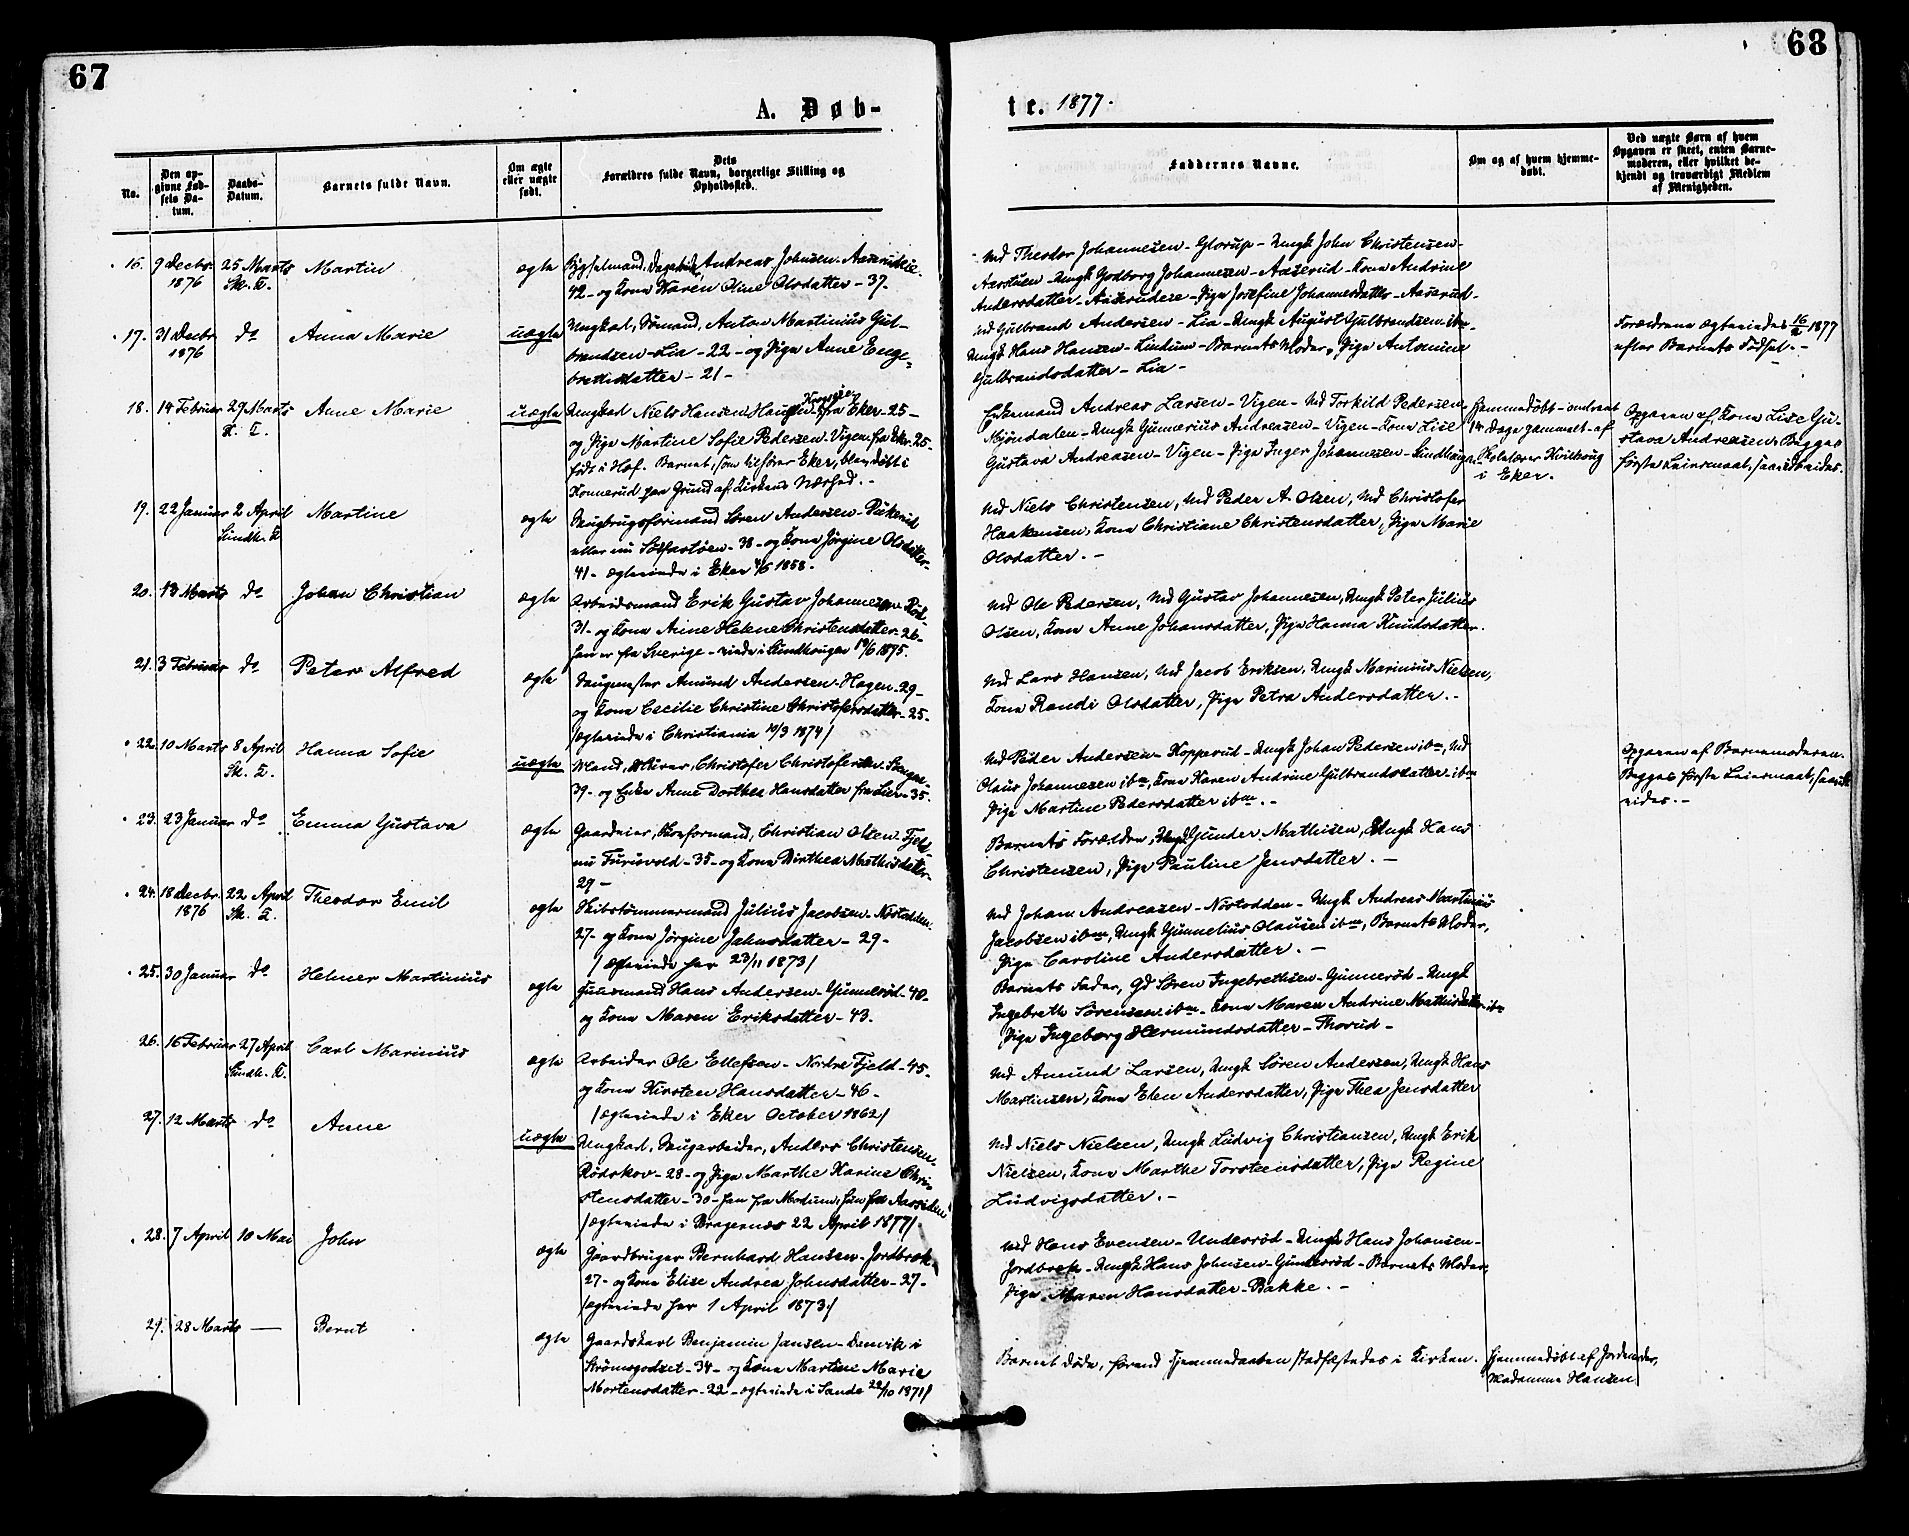 67
68
A. Døb-
te. 1877.
No.
Den op-
givne Fød-
sels Da-
tum.
Daabs-
Datum.
Barnets fulde Navn.
Om ægte
eller uægte
født.
Dets
Forældres fulde Navn, borgerlige Stilling og
Opholdssted.
Faddernes Navne.
Om og af hvem hjemme-
døbt.
Ved uægte Børn af hvem
Opgaven er skeet, enten Barne-
moderen, eller hvilket be-
kjendt og troværdigt Medlem
af Menigheden.
16. 9 Decbr. 25 Marts Martin ægte Andreas Johnsen
1876 Sk. K. 42 - og Kone Karen Oline Olsdatter - 37.
Md Theodor Johannesen - Glorup - Ungk John Christensen -
Aarstuen - Ungk Godborg Johannesen - Aaserud - Kone Andrine
Andersdatter - Pige Josefine Johannesdatter - Aaserud -
17. 31 Decbr. do Anna Marie uægte Ungkal, Sømand, Anton Martinius Gul-
1876 brandsen - Lia - 22 - og Pige Anne Enge-
brettsdatter - 21 -
Md Gulbrand Andersen - Lia - Ungk August Gulbrandsen - ibm -
Ungk Hans Hansen - Lindum - Barnets Moder, Pige Antonine
Gulbrandsdatter - Lia -
Forældrene ægteviedes 16/2 1877
efter Barnets Fødsel. -
18. 14 Februar 29 Marts Anne Marie uægte Ungkal Niels Hansen fra Eker - 25 -
K. K. og Pige Martine Sofie Pedersen - Vigen fra Eker - 25 -
født i Hof. Barnet, som tilhører Eker, blev døbt i
Konnerud paa Grund af Kirkens Nærhed. -
Enkemand Andreas Larsen - Vigen - Md Torkild Pedersen -
Mjøndalen - Ungk Gunnerius Andreasen - Vigen - Kone Lise
Gustava Andreasen - Vigen - Pige Inger Johannesen -
Hjemmedøbt - omtrent
14 Dage gammelt - af
Skolelærer
i Eker.
Opgaven af Kone Lise Gu-
stava Andreasen. Begges
første Leiermaal, saavidt vides.
19. 22 Januar 2 April Martine ægte Saugbrugsformand Søren Andersen
- 38 - og Kone Jørgine Olsdatter -
41 - ægteviede i Eker 4/6 1858.
Md Niels Christensen, Md Peder A. Olsen, Md Christofer
Haakensen, Kone Christiane Christensdatter, Pige Marie
Olsdatter. -
20. 13 Marts do Johan Christian ægte Arbeidsmand Erik Gustav Johannesen
31 - og Kone Anne Helene Christensdatter - 26 -
han er fra Sverige - viede i 19/6 1875.
Md Ole Pedersen, Md Gustav Johannesen, Ungk Peter Julius
Olsen, Kone Anne Johansdatter, Pige Hanna Knudsdatter.
21. 3 Februar do Peter Alfred ægte Saugmester Amund Andersen - Hagen - 29 -
og Kone Cecilie Christine Christofersdatter - 25 -
/ægteviede i Christiania 10/3 1874/
Md Lars Hansen, Md Jacob Eriksen, Ungk Marinius Nielsen,
Kone Randi Olsdatter, Pige Petra Andersdatter. -
22. 10 Marts 8 April Hanna Sofie uægte Mand, Christofer Christofersen
Sk. K. 39 - og Enke Anne Dorthea Hansdatter fra Lier - 35.
Md Peder Andersen - Kopperud - Ungk Johan Pedersen ibm, Md
Olaus Johannesen ibm, Kone Karen Andrine Gulbrandsdatter ibm
Pige Martine Pedersdatter ibm. -
Opgaven af Barnemoderen.
Begges første Leiermaal, saavidt
vides. -
23. 23 Januar do Emma Gustava ægte Gaardeier, Christian Olsen - Fjeld
- 35 - og Kone Dorthea Mathisdatter -
29 -
Barnets Forældre, Ungk Gunder Mathisen, Ungk Hans
Christensen, Pige Pauline Jensdatter. -
24. 18 Decbr. 22 April Theodor Emil ægte Skibstømmermand Julius Jacobsen - Nøstodden.
1876 Sk. K. 27 - og Kone Jørgine Jahnsdatter - 29 -
/ægteviede her 23/11 1873/
Md Johan Andreasen - Nøstodden - Ungk Andreas Martinius
Jacobsen ibm, Ungk Gunnelius Olausen ibm, Barnets Moder,
Pige Caroline Andersdatter. -
25. 30 Januar do Helmer Martinius ægte Husmand Hans Andersen - Gunnerød - 40 -
og Kone Maren Eriksdatter - 43.
Barnets Fader, Gd Søren Ingebrethsen - Gunnerød - Ungk
Ingebreth Sørensen ibm - Kone Maren Andrine Mathisdatter ibm
Pige Ingeborg Hermundsdatter - Thorud -
26. 16 Februar 27 April Carl Marinius ægte Arbeider Ole Ellefsen - Nordre Fjeld - 45 -
og Kone Kirsten Hansdatter - 46 -
/ægteviede i Eker October 1862/
Md Amund Larsen, Ungk Søren Andersen, Ungk Hans
Martinsen, Kone Elen Andersdatter, Pige Thea Jensdatter
27. 12 Marts do Anne uægte Ungkal, Saugarbeider, Anders Christensen
Rødskov - 28 - og Pige Marthe Karine Chri-
stensdatter - 30 - han fra Modum, hun fra Aassiden
/ægteviede i Bragernæs 22 April 1877/
Md Niels Nielsen, Ungk Ludvig Christiansen, Ungk Erik
Nielsen, Kone Marthe Torsteinsdatter, Pige Regine
Ludvigsdatter. -
28. 7 April 10 Mai John ægte Gaardbruger Bernhard Hansen - Jordbræk -
27 - og Kone Elise Andrea Johnsdatter - 27 -
/ægteviede her 1 April 1873/
Md Hans Evensen - Underrød - Ungk Hans Johansen -
Jordbræk - Ungk Hans Johnsen - Gunderød - Barnets Moder,
Pige Maren Hansdatter - Bakke. -
29. 28 Marts — Bernt ægte Gaardskarl Benjamin Jansen - Danvik i
Strømsgodset - 34 - og Kone Martine Marie
Mortensdatter - 22 - ægteviede i Sande 22/10 1871/
Barnet døde, førend Hjemmedaaben stadfæstedes i Kirken.
Hjemmedøbt af Jordemoder,
Madamme Hansen